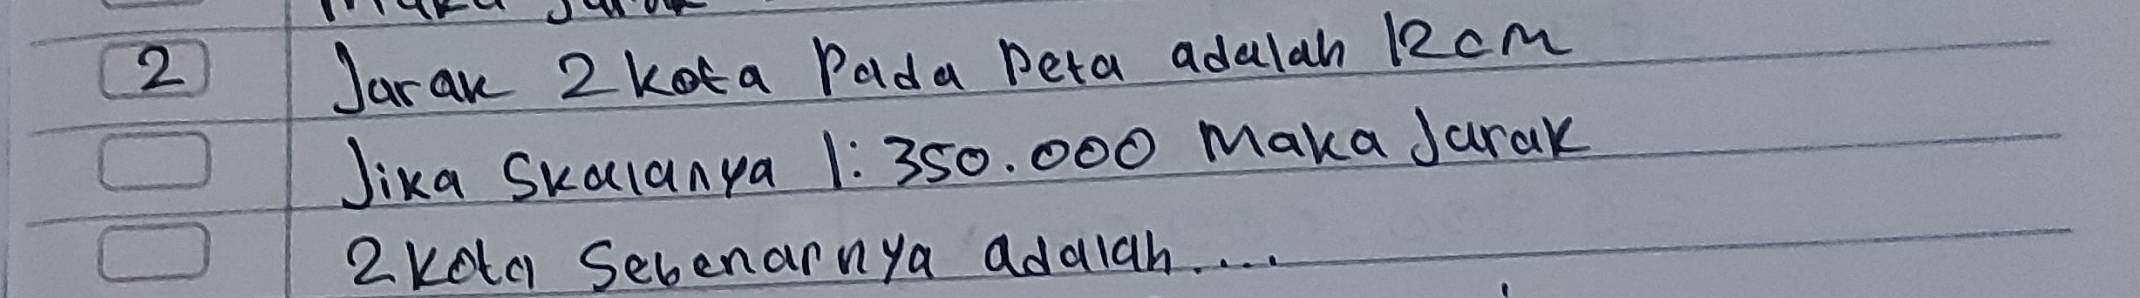 2 Jarak 2 kota Pada Peta adalah 12 cm
Jika Skalanya 1: 350.000 Maka Jarak
2 kota Sebenarnya adalah....